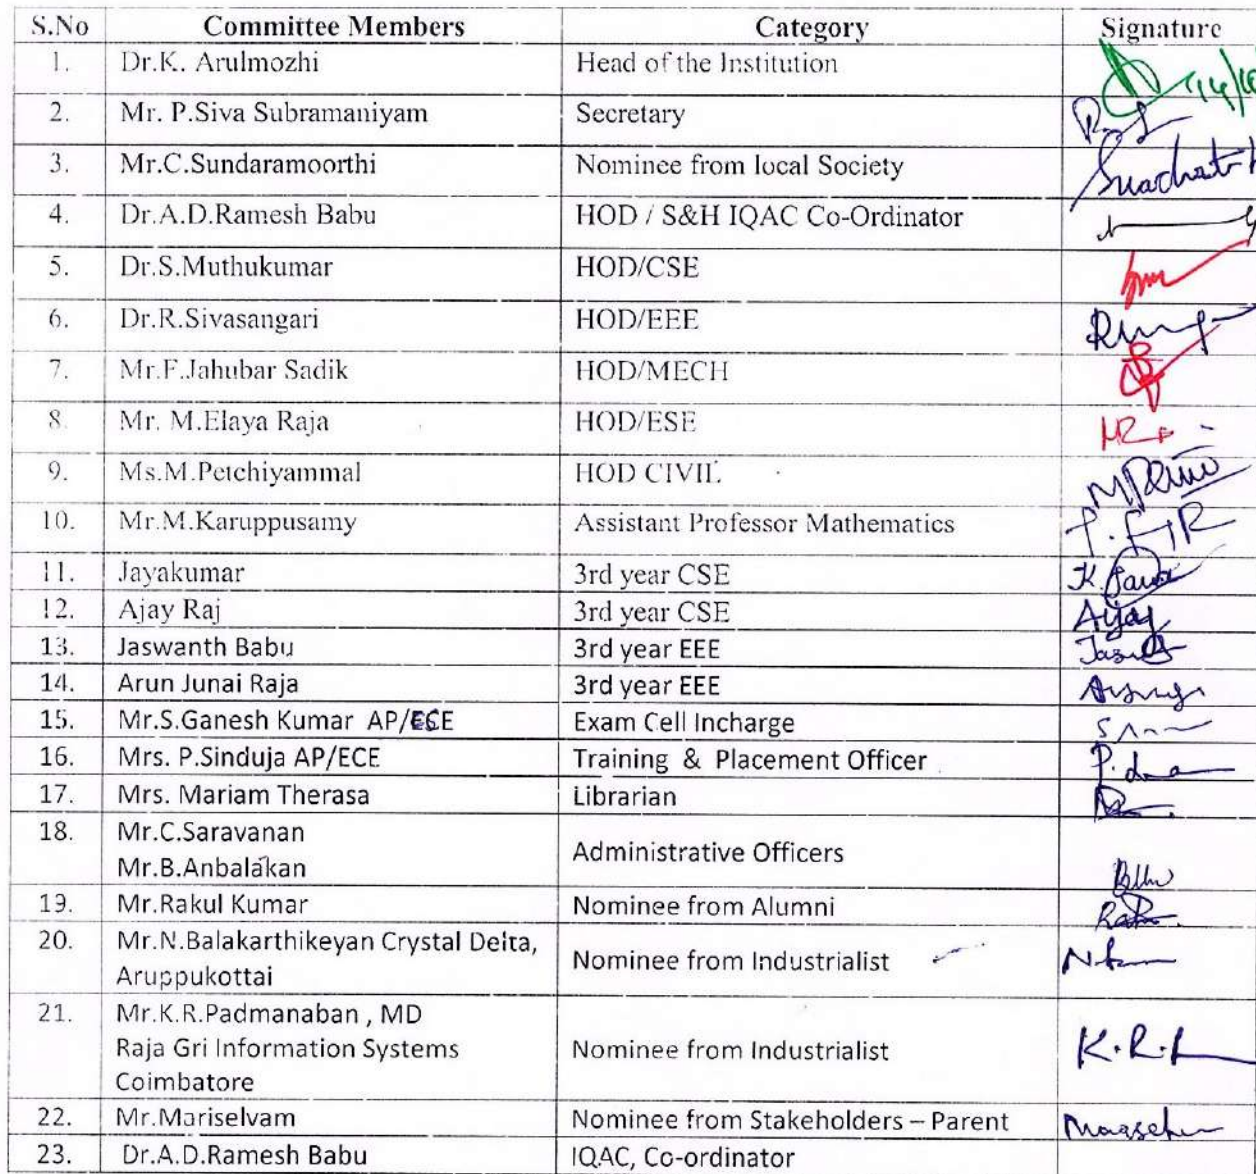 S.No Committee Members Category Signature
1. Dr.K. Arulmozhi Head of the Institution
2. Mr. P.Siva Subramaniyam Secretary
3. Mr.C.Sundaramoorthi Nominee from local Society
4. Dr.A.D.Ramesh Babu HOD / S&H IQAC Co-Ordinator
5. Dr.S.Muthukumar HOD/CSE
6. Dr.R.Sivasangari HOD/EEE
7. Mr.F.Jahubar Sadik HOD/MECH
8. Mr. M.Elaya Raja HOD/ESE
9. Ms.M.Petchiyammal HOD CIVIL
10. Mr.M.Karuppusamy Assistant Professor Mathematics
11. Jayakumar 3rd year CSE
12. Ajay Raj 3rd year CSE Ajay
13. Jaswanth Babu 3rd year EEE
14. Arun Junai Raja 3rd year EEE
15. Mr.S.Ganesh Kumar AP/ECE Exam Cell Incharge
16. Mrs. P.Sinduja AP/ECE Training & Placement Officer
17. Mrs. Mariam Therasa Librarian
18. Mr.C.Saravanan
Mr.B.Anbalakan
Administrative Officers
19. Mr.Rakul Kumar Nominee from Alumni
20. Mr.N.Balakarthikeyan Crystal Delta,
Aruppukottai
Nominee from Industrialist
21. Mr.K.R.Padmanaban , MD
Raja Gri Information Systems
Coimbatore
Nominee from Industrialist
22. Mr.Mariselvam Nominee from Stakeholders – Parent
23. Dr.A.D.Ramesh Babu IQAC, Co-ordinator